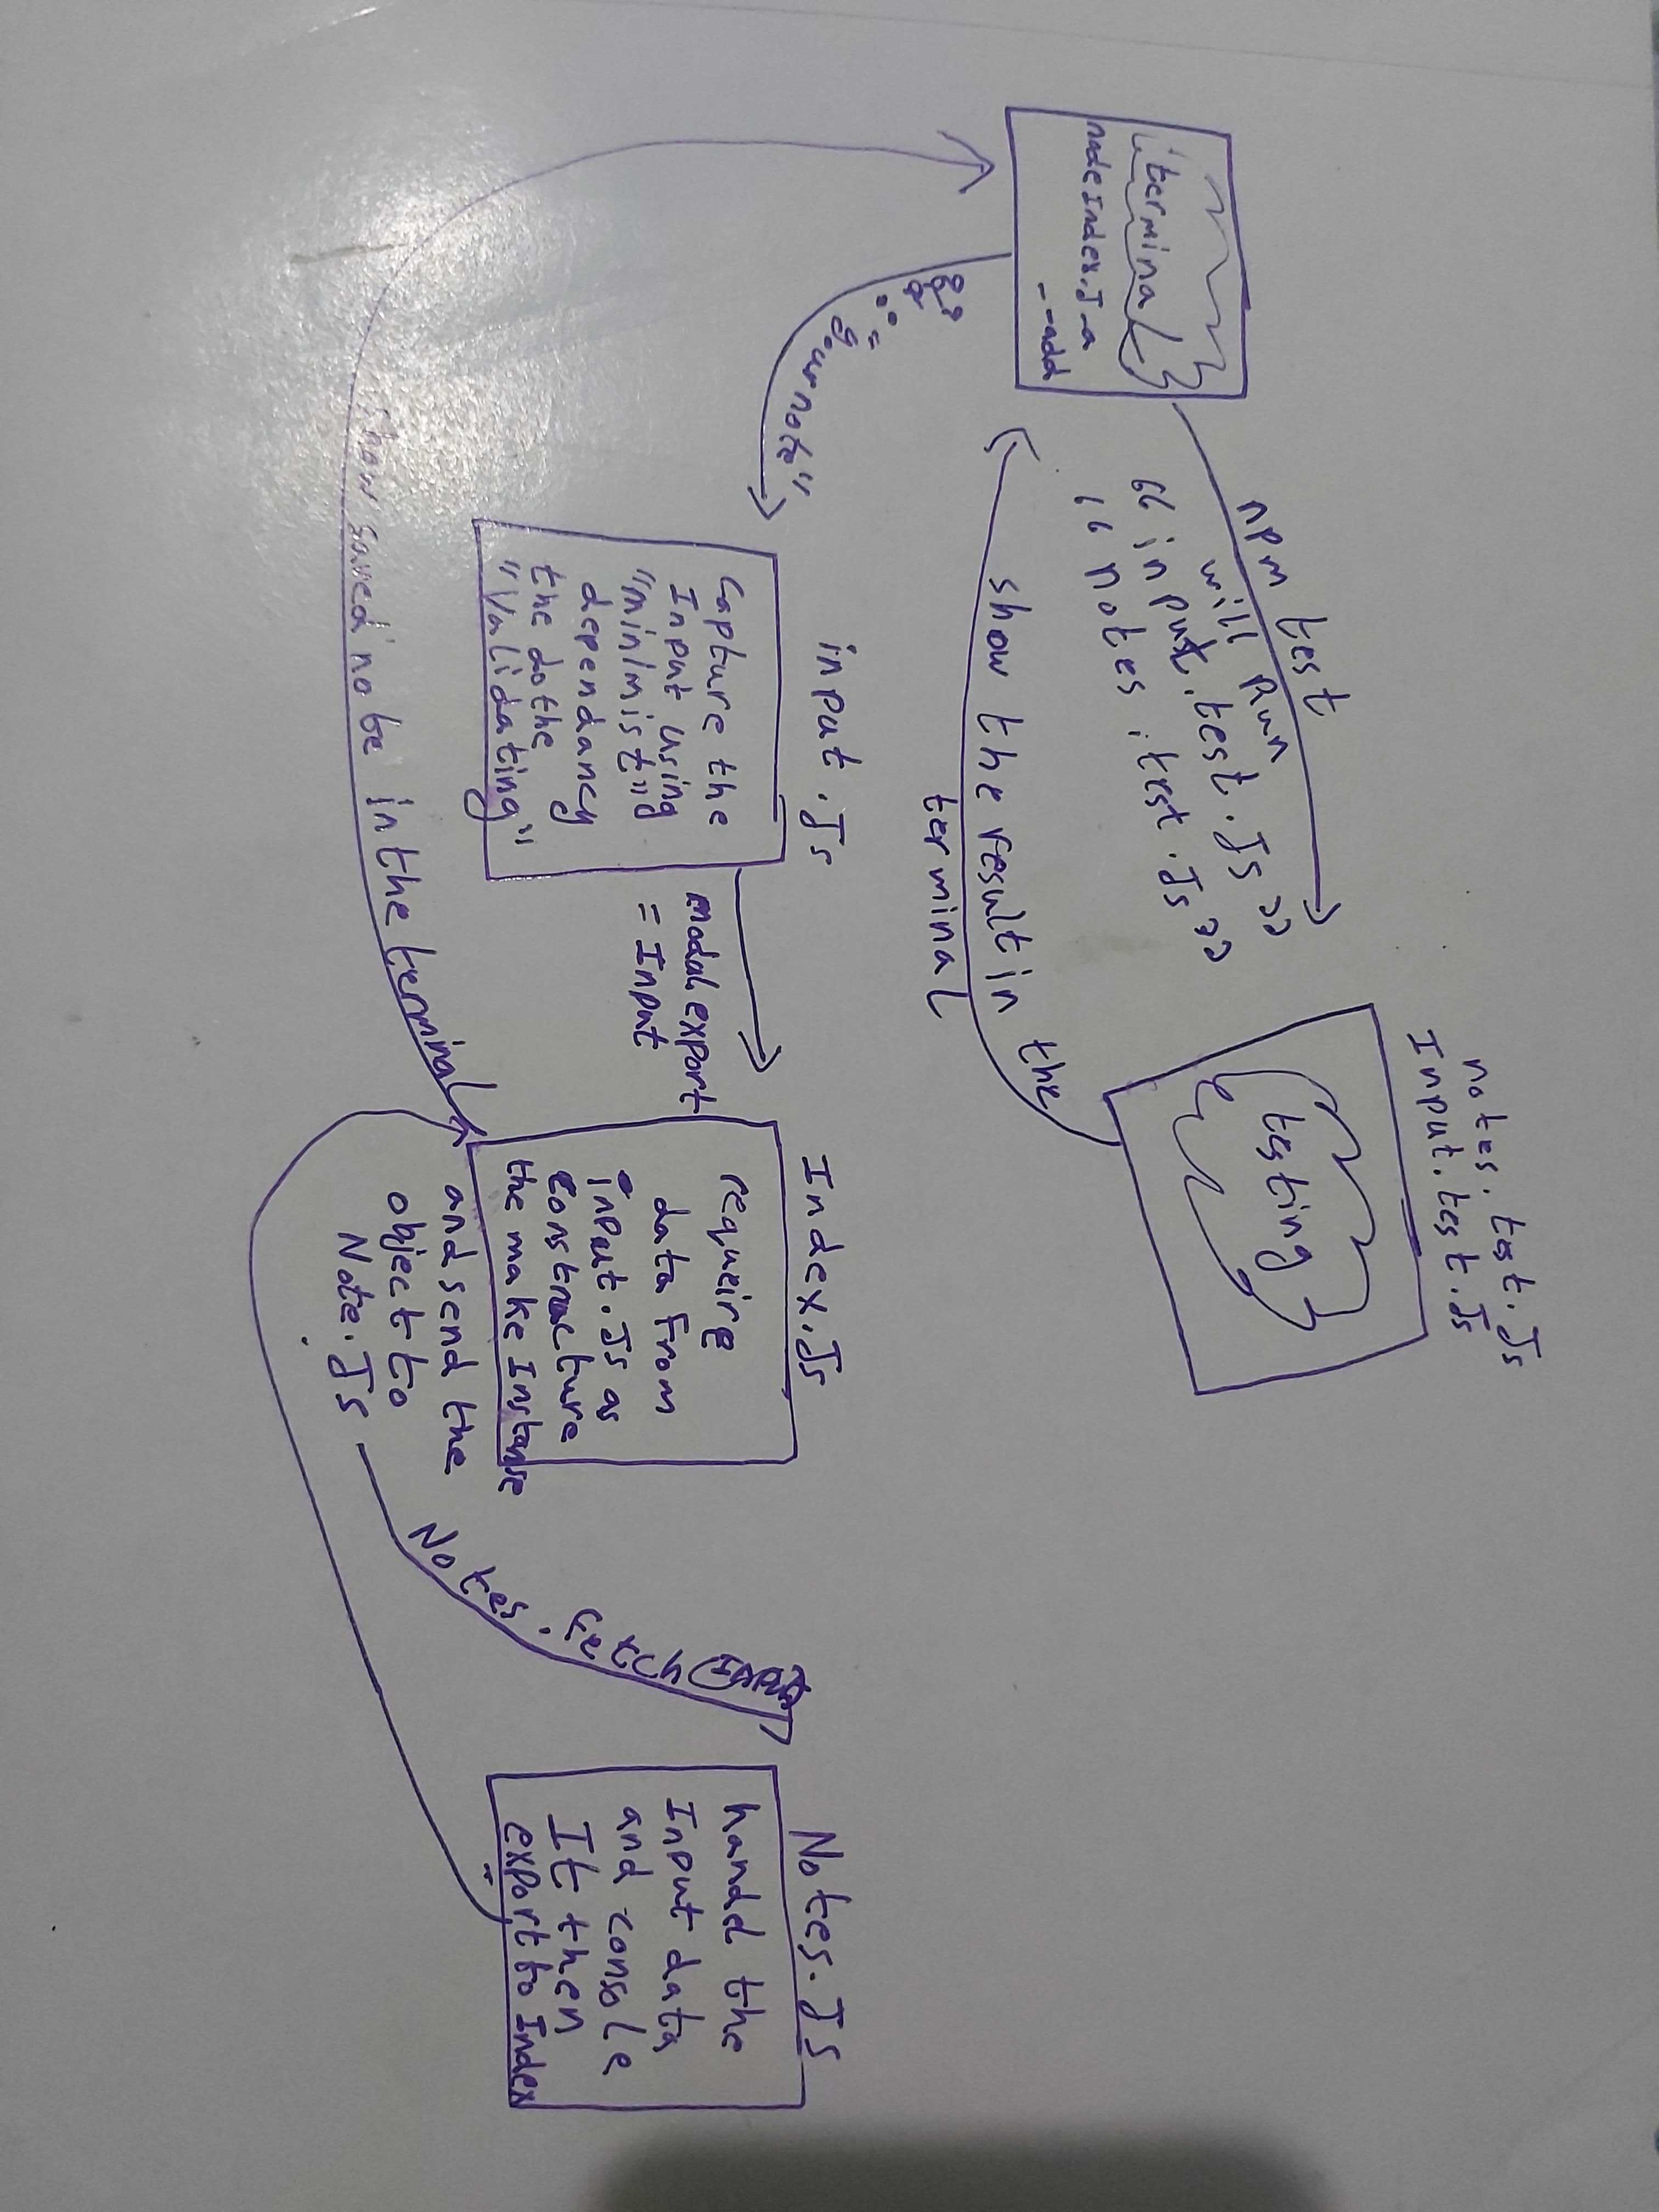 notes.test.Js
Input.test.Js
testing
npm test
will Run
"input.test.Js"
"notes.test.Js"
terminal
node Index.J -a
--add
show the result in the
terminal
add: "your note"
input.Js
Capture the
Input using
"minimist"
dependancy
the do the
"Validating"
modal export
= Input
Index.Js
requeire
data From
input.Js as
Constructure
the make Instanse
and send the
object to
Note.Js
Notes.Fetch
Notes.JS
handel the
Input data
and console
It then
export to Index
show saved note in the terminal